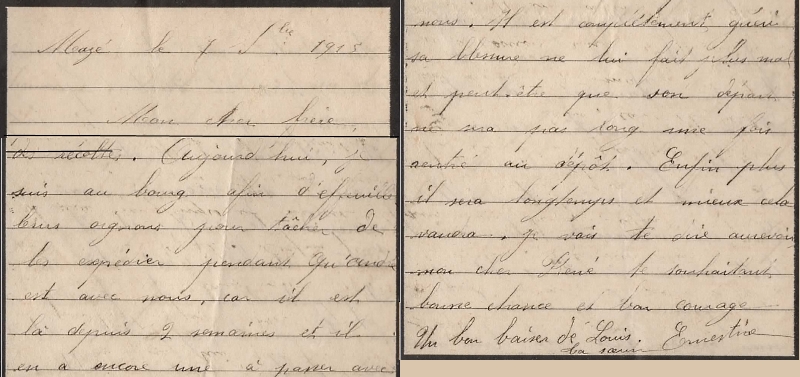 Mazé le 7 Sbre 1915
Mon cher frère,
des récoltes. Aujourd'hui, je
suis au bourg afin d'efeuiller
leurs oignons pour tâcher de
les expédier pendant qu'André
est avec nous, car il est
là depuis 2 semaines et il
en a encore une à passer avec
nous. Il est complètement guéri
sa blessure ne lui fais plus mal
et peut-être que son départ
ne sera pas long une fois
rentré au dépôt. Enfin plus
il sera longtemps et mieux cela
vaudra. Je vais te dire aurevoir
mon cher René te souhaitant
bonne chance et bon courage
Un bon baiser de Louis. Ernestine
ta sœur